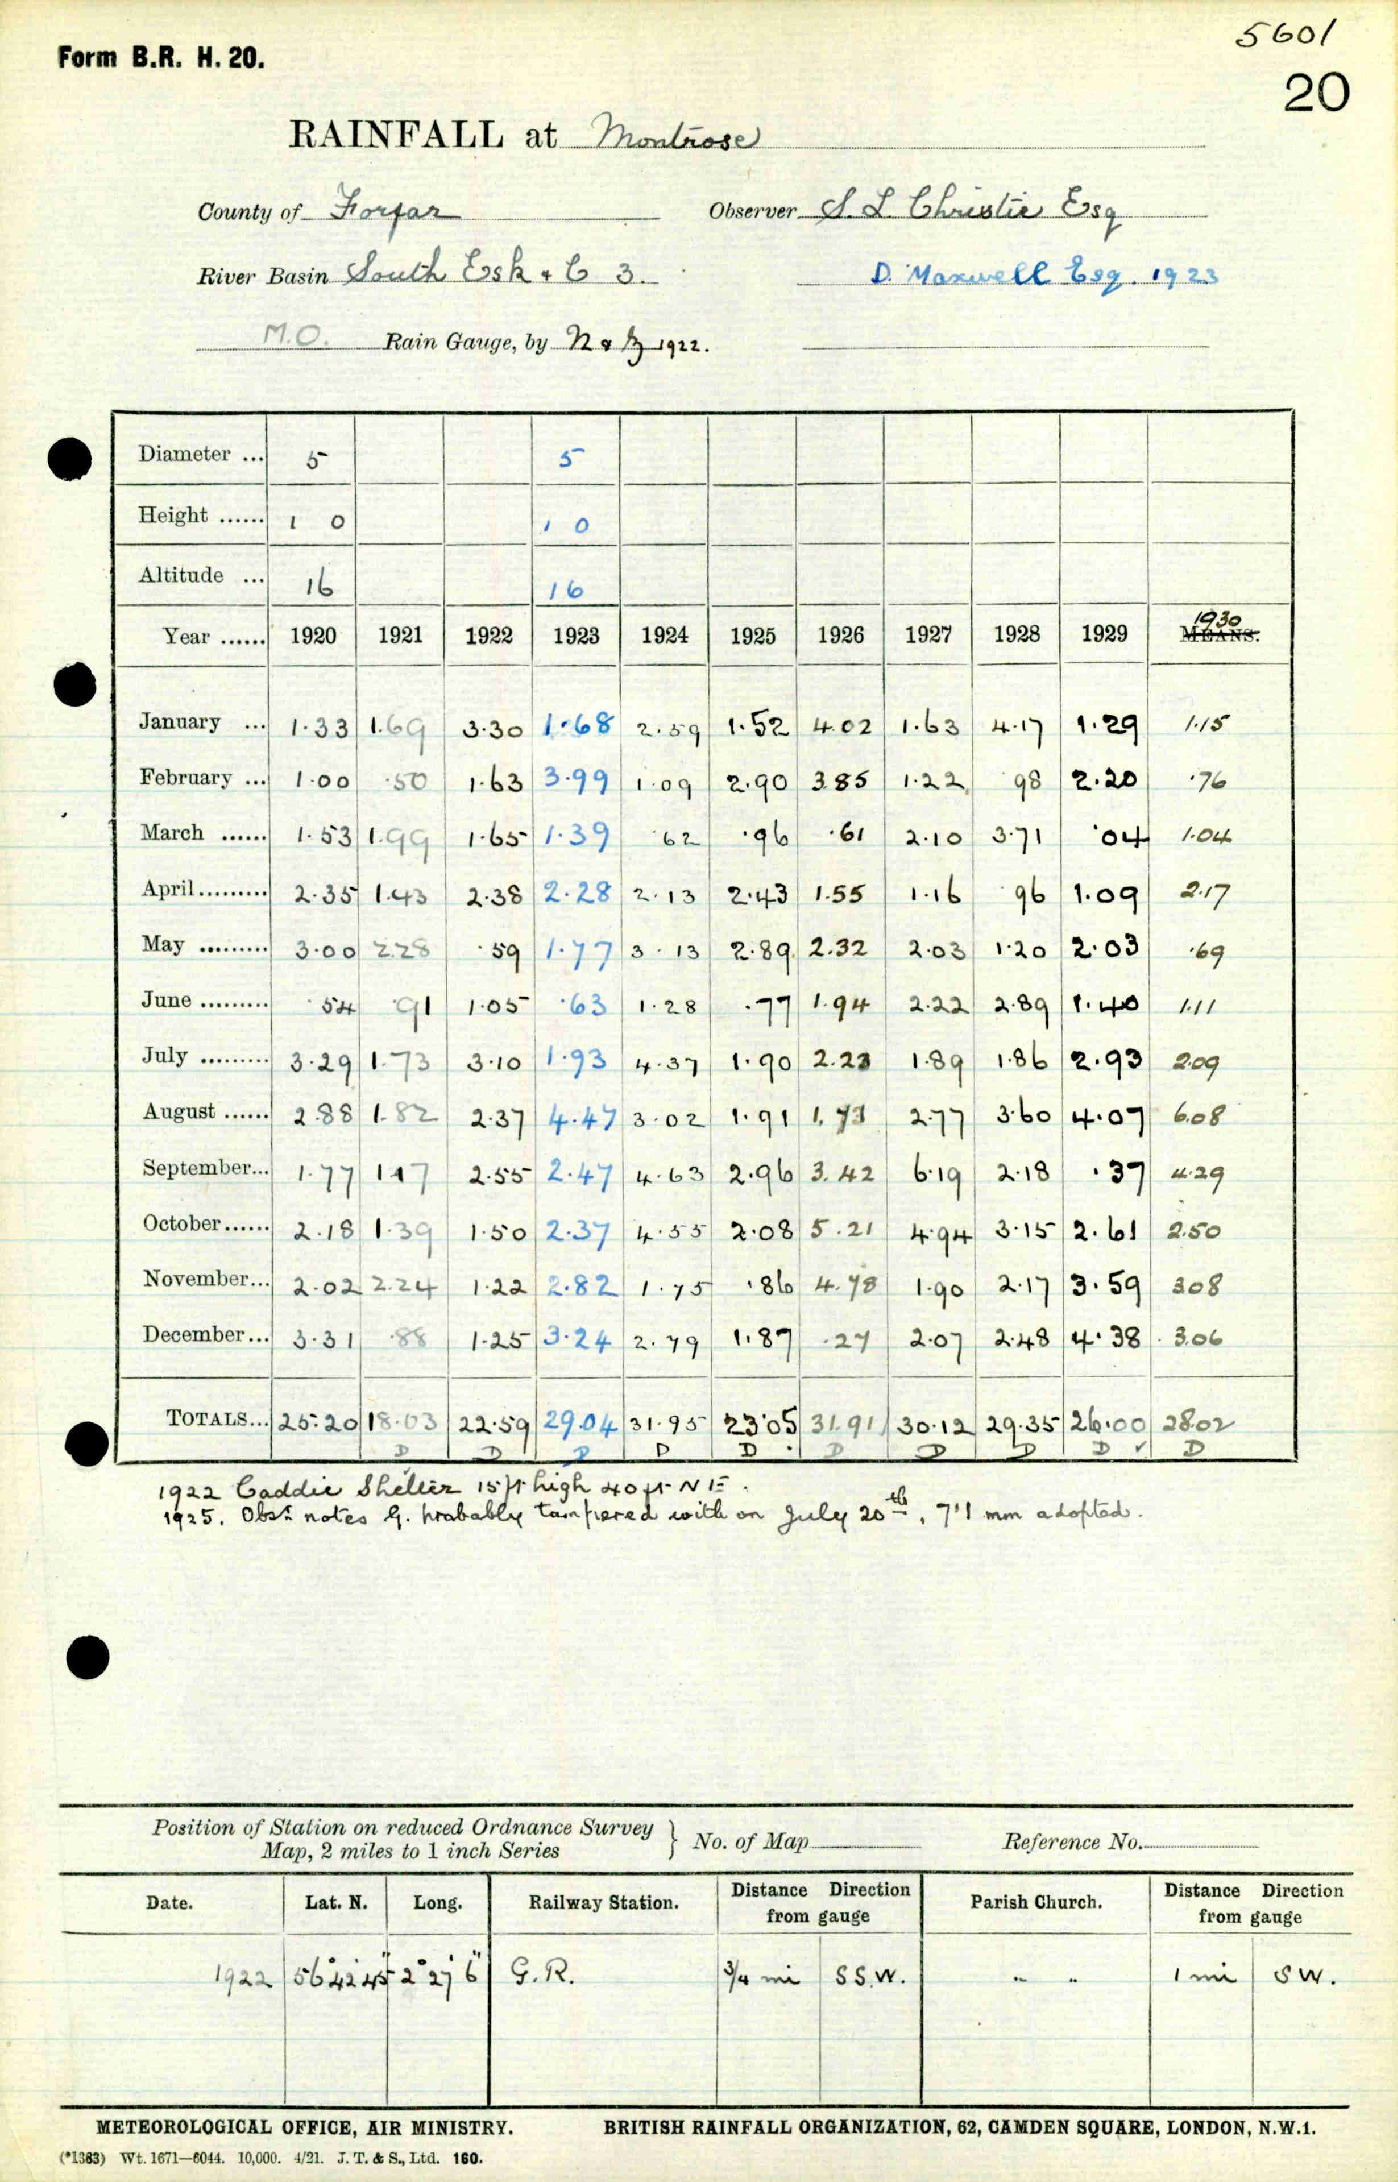 5601
Form B.R. H. 20.
20
RAINFALL at Montrose
County of Forfar Observer S. L Christie Esq
River Basin South Esk & C 3. D. Maxwell Esq. 1923
M.O. Rain Gauge, by N & Z 1922.
Diameter ... 5 5
Height ...... 1 0 1 0
Altitude ... 16 16
Year ...... 1920 1921 1922 1923 1924 1925 1926 1927 1928 1929 1930 MEANS.
January ... 1.33 1.69 3.30 1.68 2.59 1.52 4.02 1.63 4.17 1.29 1.15
February ... 1.00 .50 1.63 3.99 1.09 2.90 3.85 1.22 .98 2.20 .76
March ...... 1.53 1.99 1.65 1.39 .62 .96 .61 2.10 3.71 .04 1.04
April ......... 2.35 1.43 2.38 2.28 2.13 2.43 1.55 1.16 .96 1.09 2.17
May ......... 3.00 2.28 .59 1.77 3.13 2.89 2.32 2.03 1.20 2.03 .69
June ......... .54 .91 1.05 .63 1.28 .77 1.94 2.22 2.89 1.40 1.11
July ......... 3.29 1.73 3.10 1.93 4.37 1.90 2.23 1.89 1.86 2.93 2.09
August ...... 2.88 1.82 2.37 4.47 3.02 1.91 1.71 2.77 3.60 4.07 6.08
September... 1.77 1.17 2.55 2.47 4.63 2.96 3.42 6.19 2.18 .37 4.29
October...... 2.18 1.39 1.50 2.37 4.55 2.08 5.21 4.94 3.15 2.61 2.50
November... 2.02 2.24 1.22 2.82 1.75 .86 4.78 1.90 2.17 3.59 3.08
December... 3.31 .88 1.25 3.24 2.79 1.87 .27 2.07 2.48 4.38 3.06
TOTALS... 25.20 18.03 22.59 29.04 31.95 23.05 31.91 30.12 29.35 26.00 28.02
D D D D D D D D D ✓ D
1922 Caddie Shelter 15 ft high 40 ft N E.
1925. Obsr. notes G. probably tampered with on July 20th, 7.1 mm adopted.
Position of Station on reduced Ordnance Survey Map, 2 miles to 1 inch Series } No. of Map Reference No.
Date. Lat. N. Long. Railway Station. Distance Direction from gauge Parish Church. Distance Direction from gauge
1922 56°42'45" 2°27'6" G.R. 3/4 mi S S.W. " " 1 mi S W.
METEOROLOGICAL OFFICE, AIR MINISTRY. BRITISH RAINFALL ORGANIZATION, 62, CAMDEN SQUARE, LONDON, N.W.1.
(*1383) Wt. 1671—6044. 10,000. 4/21. J. T. & S., Ltd. 160.